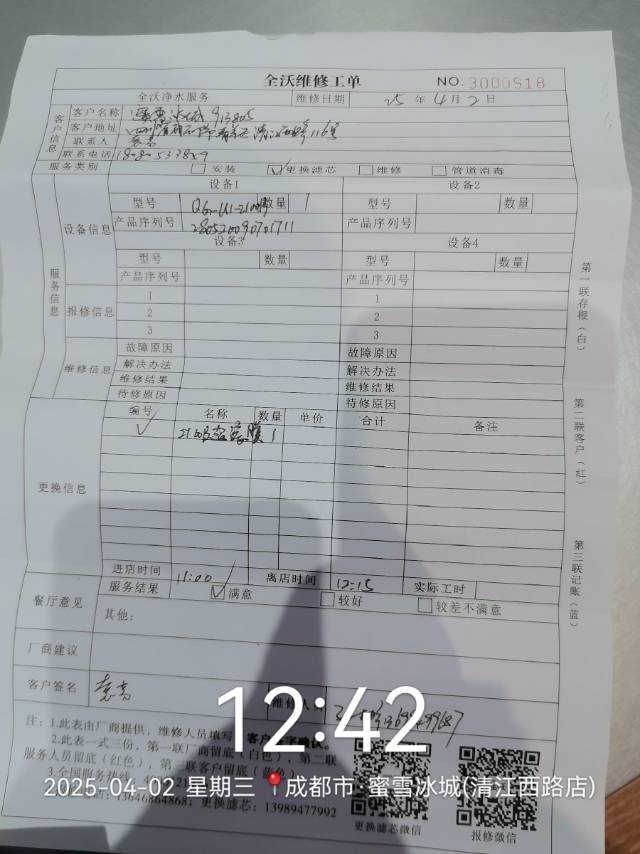 全沃维修工单
NO.3000918
全沃净水服务 维修日期 25 年 4 月 2 日
客户信息
客户名称 蜜雪冰城 913805
客户地址 清江西路 116号
联系人
联系电话
服务类别 安装 更换滤芯 维修 管道消毒
服务信息
设备信息
设备1 设备2
型号 数量 1 型号 数量
产品序列号 产品序列号
设备3 设备4
型号 数量 型号 数量
产品序列号 产品序列号
报修信息
1 1
2 2
3 3
维修信息
故障原因 故障原因
解决办法 解决办法
维修结果 维修结果
待修原因 待修原因
更换信息
编号 名称 数量 单价 合计 备注
1
进店时间 11:00 离店时间 12:15 实际工时
餐厅意见
服务结果 满意 较好 较差不满意
其他:
厂商建议
客户签名 维修人
注: 1.此表由厂商提供, 维修人员填写 字确认。
2.此表一式三份, 第一联厂商留底(白色), 第二联
服务人员留底(红色), 第三联客户留底(蓝色)
3.全国服务热线
13646864868; 更换滤芯: 13989477992
更换滤芯微信
报修微信
第一联存根(白)
第二联客户(红)
第三联记账(蓝)
12:42
2025-04-02 星期三 成都市·蜜雪冰城(清江西路店)